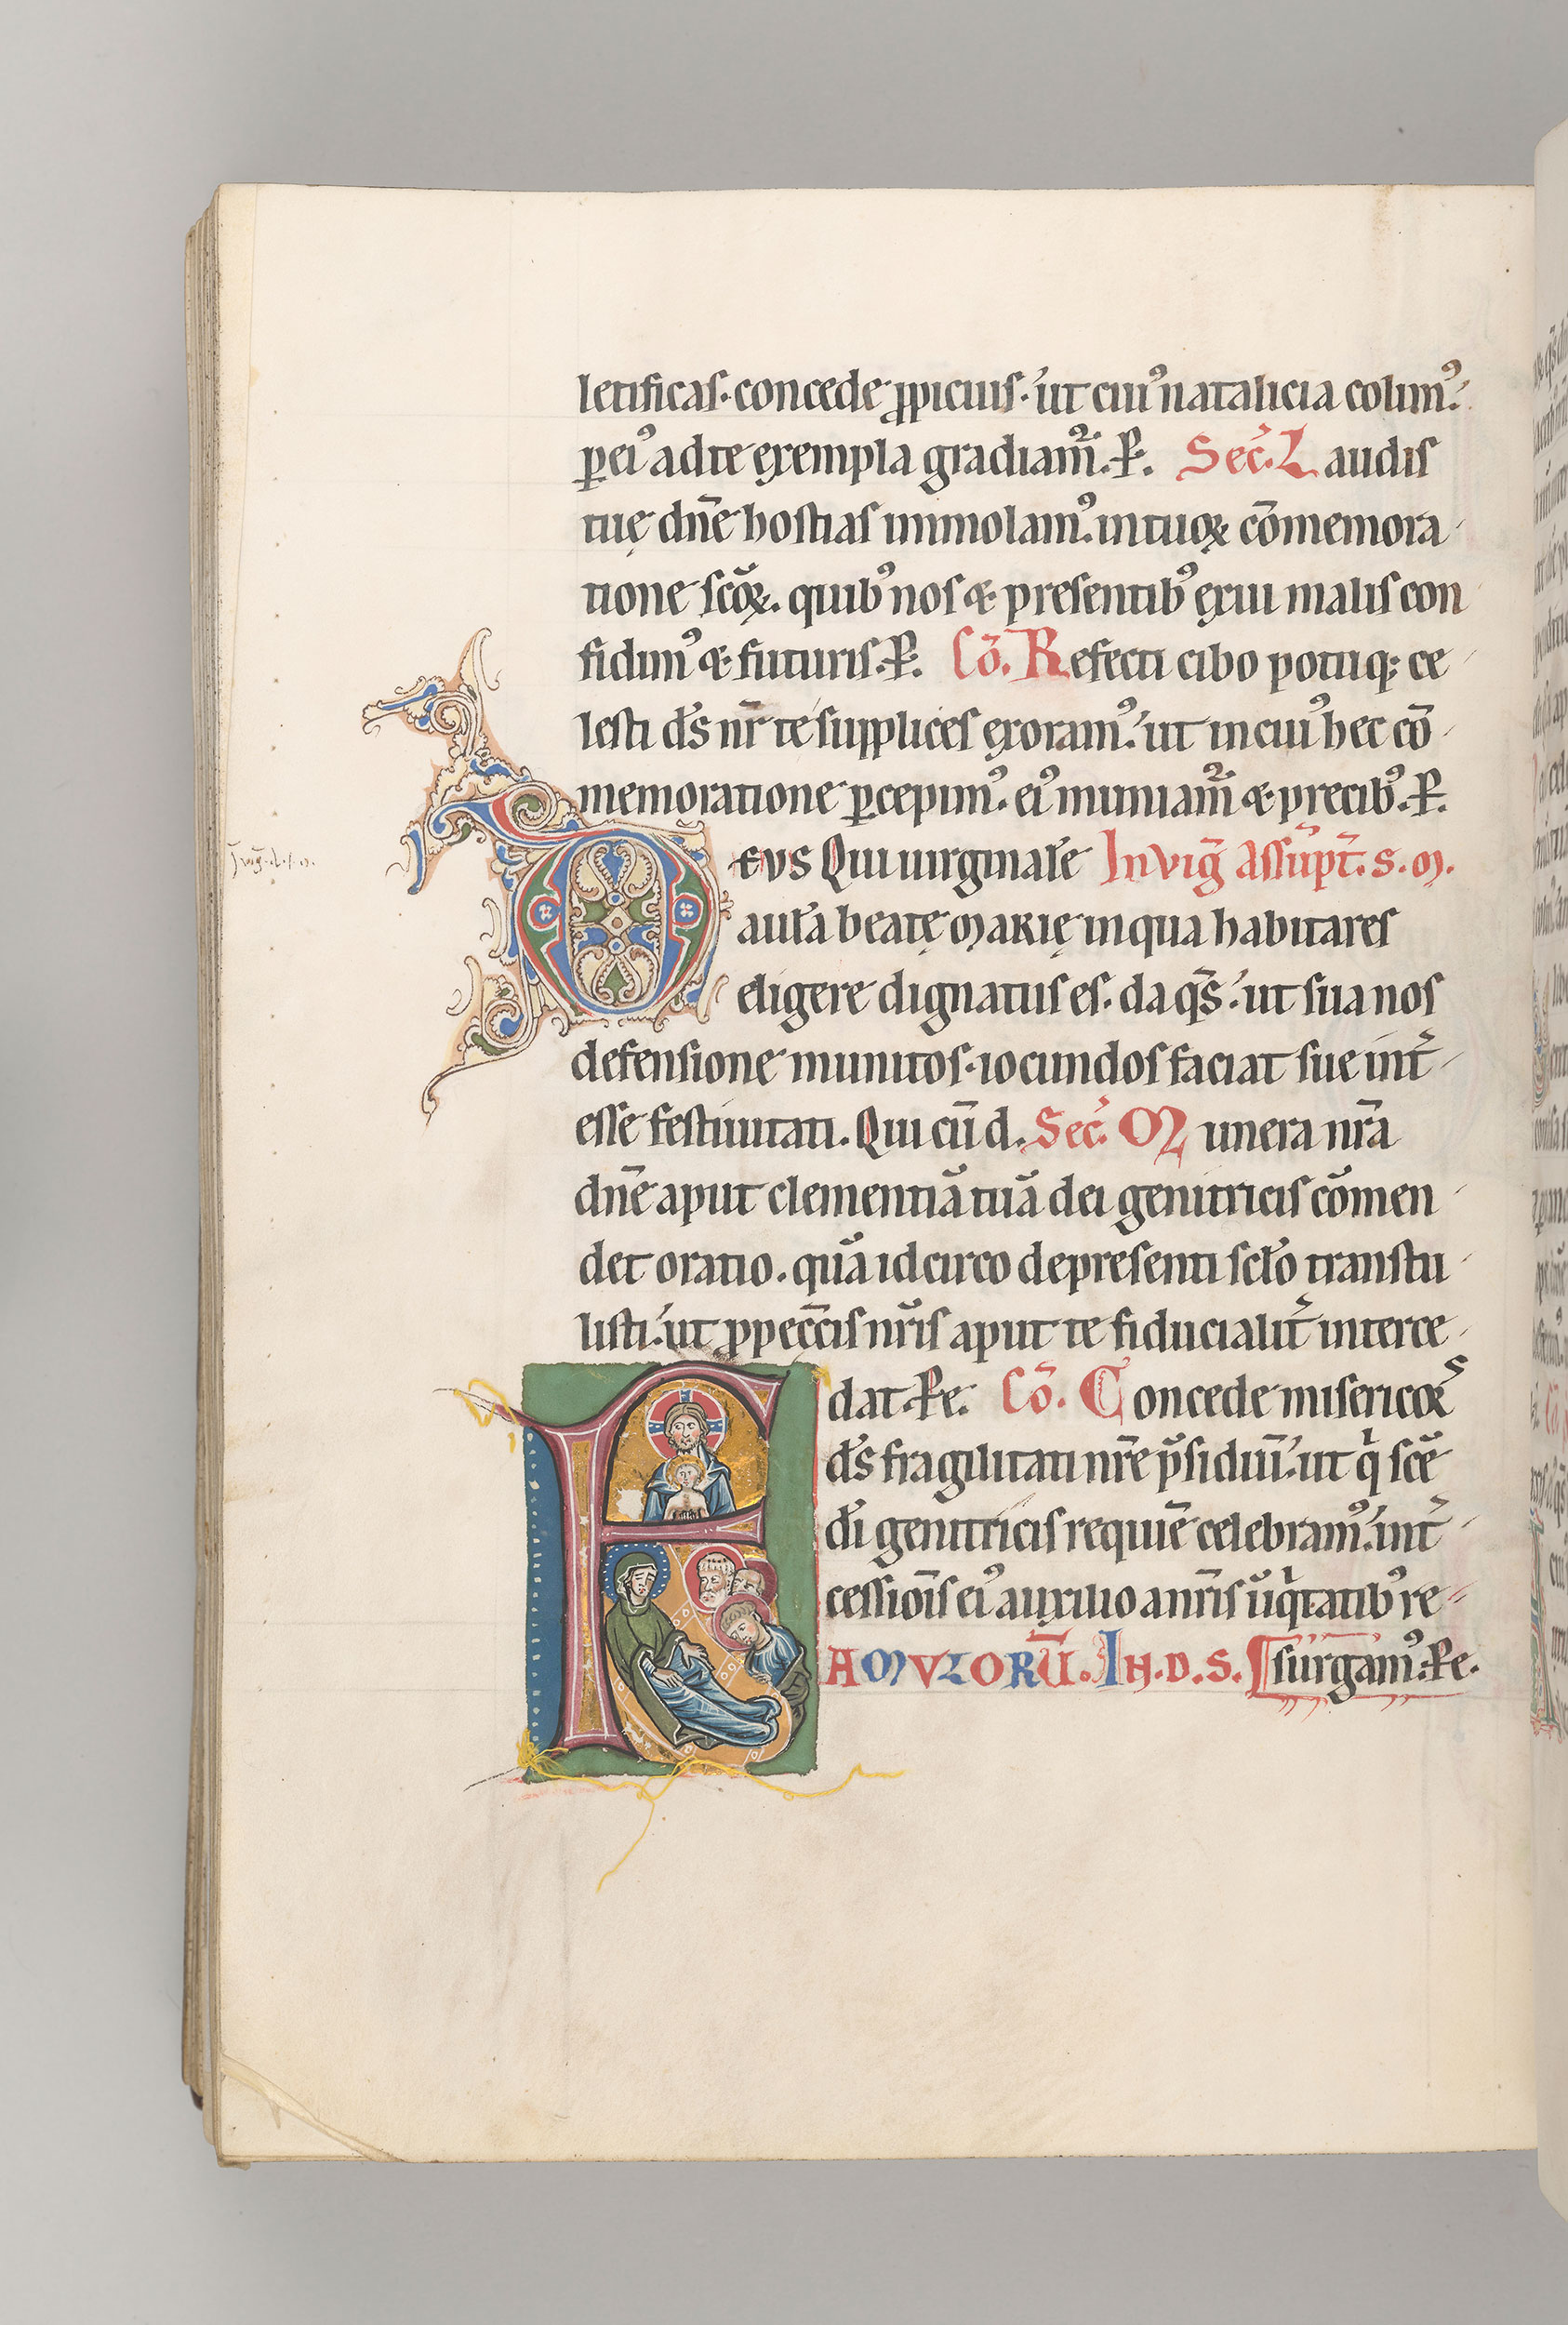 letificas· concede ꝓpicius·' ut cuiꝰ natalicia colimꝰ.'
ꝑ eiꝰ ad te exempla gradiam᷑. P̶. Sec̄. Laudis
tuę dn̄e hostias immolamꝰ. in tuoꝝ cōmemora
tione sc̄oꝝ. quibꝰ nos & presentibꝰ exui malis con
fidimꝰ & futuris. P̶. Cō. Refecti cibo potuq; ce
lesti d̄s nr̄ te supplices exoramꝰ.' ut in cuiꝰ hec cō
memoratione ꝑcepimꝰ. eiꝰ muniam᷑ & precibꝰ. P̶.
DEVS Qui uirginale In viḡ assūpt̄. S. M.
aula beatę MARIę in qua habitares
eligere dignatus es. da qs̄.' ut sua nos
defensione munitos· iocundos faciat sue int̄
esse festiuitati. Qui cū d. Sec̄. Munera nr̄a
dn̄e aput clementiā tuā dei genitricis cōmen
det oratio. quā idcirco de presenti scło transtu
listi.' ut ꝓ pecc̄is nr̄is aput te fiducialit̄ interce
dat. P̶e. Cō. Concede misericors
d̄s fragilitati nr̄e p̄sidiū.' ut qͥ sc̄e
d̄i genitricis requiē celebramꝰ.' int̄
cessiōis eiꝰ auxilio a nr̄is iniqͥtatibꝰ re
FAMVLORŪ. IN. D. S. surgamꝰ. P̶e.